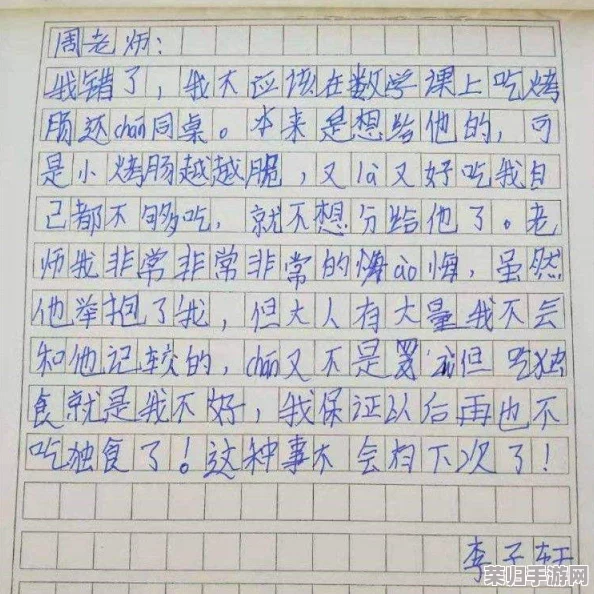 周老师：
我错了，我不应该在数学课上吃烤
肠还chán同桌。本来是想给他的，可
是小烤肠越越脆，又là又好吃我自
己都不够吃，就不想分给他了。老
师我非常非常非常的悔ào悔，虽然
他举抱了我，但大人有大量我不会
和他记较的，chán又不是罪 但吃独
食就是我不好，我保证以后再也不
吃独食了！这种事不会有下次了！
李子轩
荣归手游网